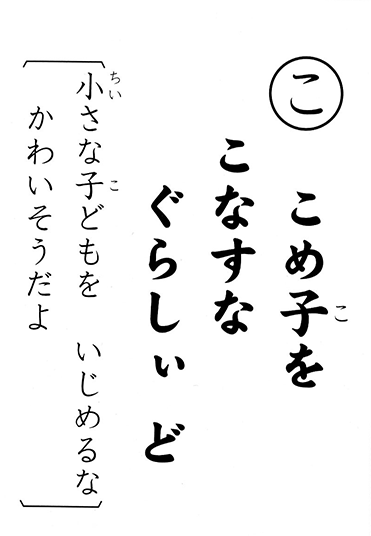 こ
こめ子を
こなすな
ぐらしぃ ど
小さな子どもを いじめるな
かわいそうだよ